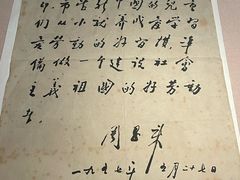 新中国的儿童
们从小就养成爱学习
爱劳动的好习惯，准
备做一个建设社会
主义祖国的好劳动
者。
周恩来
一九五七年 五月二十七日